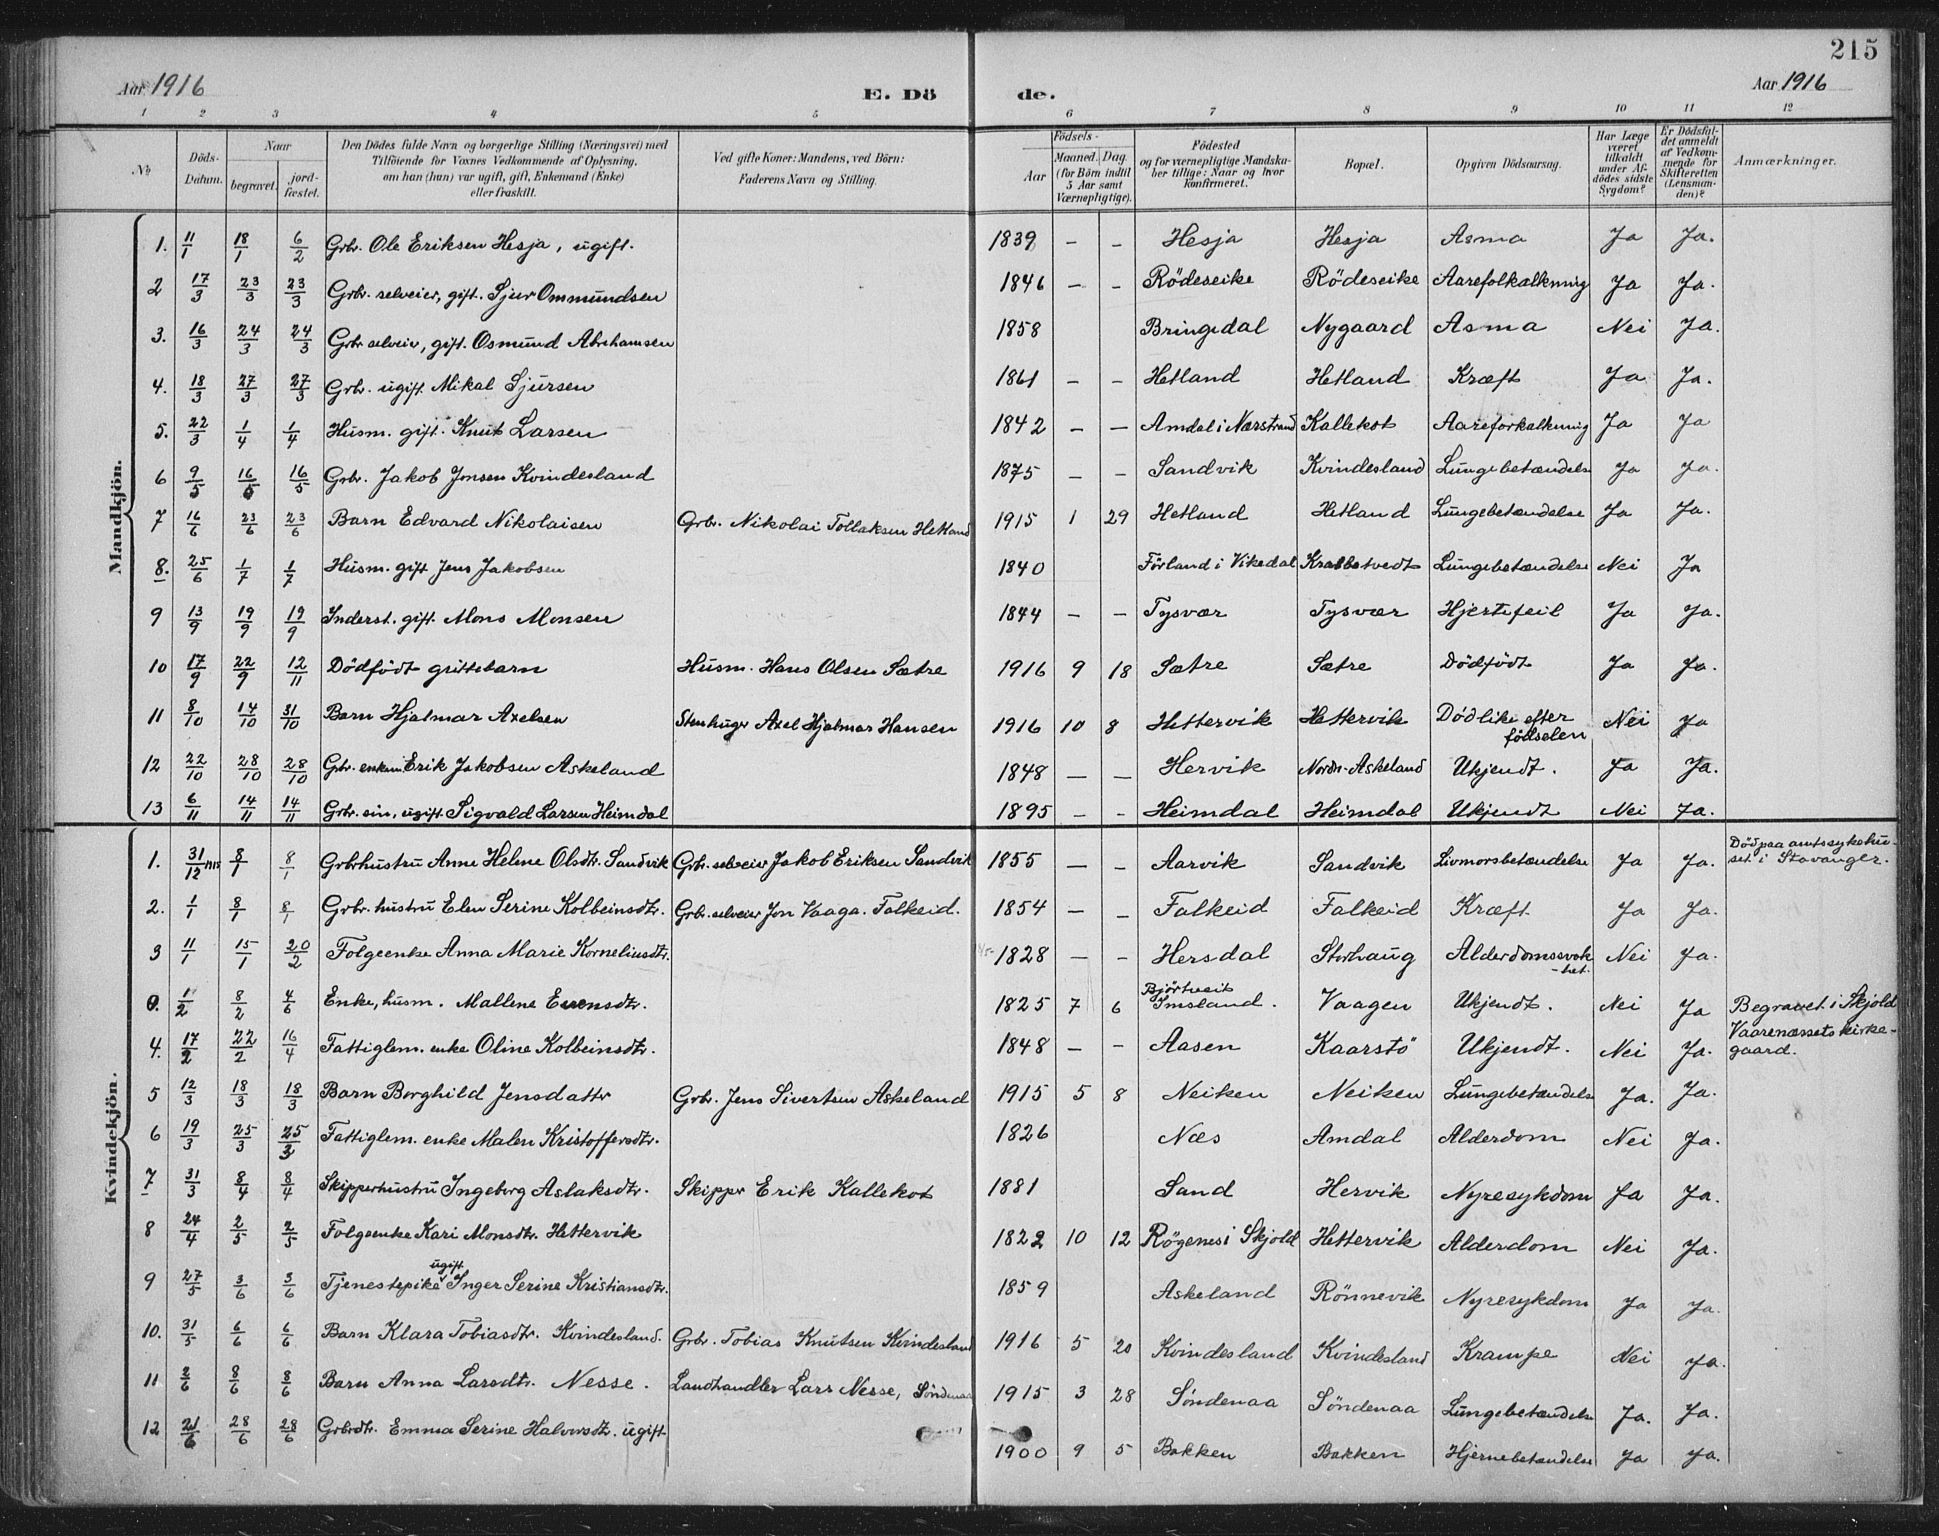 215
Aar 1916 E. Dö de. Aar 1916
1 2 3 4 5 6 7 8 9 10 11 12
No. Döds-Datum. Naar begravet. jordfæstet. Den Dödes fulde Navn og borgerlige Stilling (Næringsvei) med Tilföiende for Voxnes Vedkommende af Oplysning, om han (hun) var ugift, gift, Enkemand (Enke) eller fraskilt. Ved gifte Koner: Mandens, ved Börn: Faderens Navn og Stilling. Födsels- Aar Maaned. Dag (for Börn indtil 5 Aar samt Værnepligtige). Födested og for værnepligtige Mandskaber tillige: Naar og hvor konfirmeret. Bopæl. Opgiven Dödsaarsag. Har Læge været tilkaldt under Afdödes sidste Sygdom? Er Dödsfaldet anmeldt af Vedkommende for Skifteretten (Lensmanden)? Anmærkninger.
Mandkjön.
1. 11/1 18/1 6/2 Grbr. Ole Eriksen Hesja, ugift. 1839 – – Hesja Hesja Asma Ja Ja.
2 17/3 23/3 23/3 Grbr. selveier, gift. Sjur Ommundsen 1846 – – Rödeseike Rödeseike Aarefolkalkning Ja Ja.
3. 16/3 24/3 24/3 Grbr selveier, gift. Osmund Abrahamsen 1858 Bringedal Nygaard Asma Nei Ja.
4. 18/3 27/3 27/3 Grbr. ugift Mikal Sjursen 1861 – – Hetland Hetland Kræft Ja Ja.
5. 22/3 1/4 1/4 Husm. gift. Knut Larsen 1842 – – Amdal i Nærstrand Kallekot Aareforkalkning Ja Ja
6 9/5 16/5 16/5 Grbr. Jakob Jonsen Kvindesland 1875 – – Sandvik Kvindesland Lungebetændelse Ja Ja.
7 16/6 23/6 23/6 Barn Edvard Nikolaisen Grbr. Nikolai Tollaksen Hetland 1915 1 29 Hetland Hetland Lungebetændelse Ja Ja.
8. 25/6 1/7 1/7 Husm. gift Jens Jakobsen 1840 Förland i Vikedal Krabbetvedt Lungebetændelse Nei Ja
9 13/9 19/9 19/9 Inderst. gift. Mons Monsen 1844 – – Tysvær Tysvær Hjertefeil Ja Ja.
10 17/9 22/9 12/11 Dödfödt guttebarn Husm. Hans Olsen Sætre 1916 9 18 Sætre Sætre Dödfödt Ja Ja.
11 8/10 14/10 31/10 Barn Hjalmar Axelsen Stenhuger Axel Hjalmar Hansen 1916 10 8 Hettervik Hettervik Död like efter födselen Nei Ja
12 22/10 28/10 28/10 Grbr. enkem Erik Jakobsen Askeland 1848 – – Hervik Nordr. Askeland Ukjendt. Ja Ja.
13 6/11 14/11 14/11 Grbr. sön, ugift Sigvald Larsen Heimdal 1895 – – Heimdal Heimdal Ukjendt Nei Ja.
Kvindekjön.
1. 31/12 1915 8/1 8/1 Grbrhustru Anne Helene Olsdtr. Sandvik Grbr. selveier Jakob Eriksen Sandvik 1855 – – Aarvik Sandvik Livmorsbetændelse Ja Ja. Död paa amtssykehuset i Stavanger.
2. 1/1 8/1 8/1 Grbr. hustru Elen Serine Kolbeinsdtr. Grbr. selveier Jon Vaaga. Falkeid. 1854 – – Falkeid Falkeid Kræft Ja Ja.
3 11/1 15/1 20/2 Folgeenke Anna Marie Korneliusdtr. 1828 – – Hersdal Storhaug Alderdomssvakhet. Nei Ja.
0. 1/2 8/2 4/6 Enke, husm. Mallene Evensdtr. 1825 7 6 Björtveit Imsland. Vaagen Ukjendt. Nei Ja Begravet i Skjold Vaarenæssets kirkegaard.
4. 17/2 22/2 16/4 Fattiglem. enke Oline Kolbeinsdtr. 1848 – – Aasen Kaarstö Ukjendt. Nei Ja.
5 12/3 18/3 18/3 Barn Borghild Jensdattr Grbr. Jens Sivertsen Askeland 1915 5 8 Neiken Neiken Lungebetændelse Ja. Ja.
6 19/3 25/3 25/3 Fattiglem. enke Malen Kristoffersdtr. 1826 Næs Amdal Alderdom Nei Ja.
7 31/3 8/4 8/4 Skipperhustru Ingeborg Aslaksdtr. Skipper Erik Kallekot 1881 Sand Hervik Nyresykdom Ja Ja.
8 24/4 2/5 2/5 Folgeenke Kari Monsdtr. Hettervik 1822 10 12 Rögenes i Skjold Hettervik Alderdom Nei Ja.
9 27/5 3/6 3/6 Tjenestepike ugift Inger Serine Kristiansdtr. 1859 Askeland Rönnevik Nyresykdom Ja Ja.
10. 31/5 6/6 6/6 Barn Klara Tobiasdtr. Kvindesland. Grbr. Tobias Knutsen Kvindesland 1916 5 20 Kvindesland Kvindesland Krampe Nei Ja.
11 2/6 8/6 8/6 Barn Anna Larsdtr. Nesse. Landhandler Lars Nesse, Söndenaa 1915 3 28 Söndenaa Söndenaa Lungebetændelse Ja. Ja.
12 21/6 28/6 28/6 Grbrdtr. Emma Serine Halvorsdtr. ugift 1900 9 5 Bakken Bakken Hjernebetændelse Ja Ja.